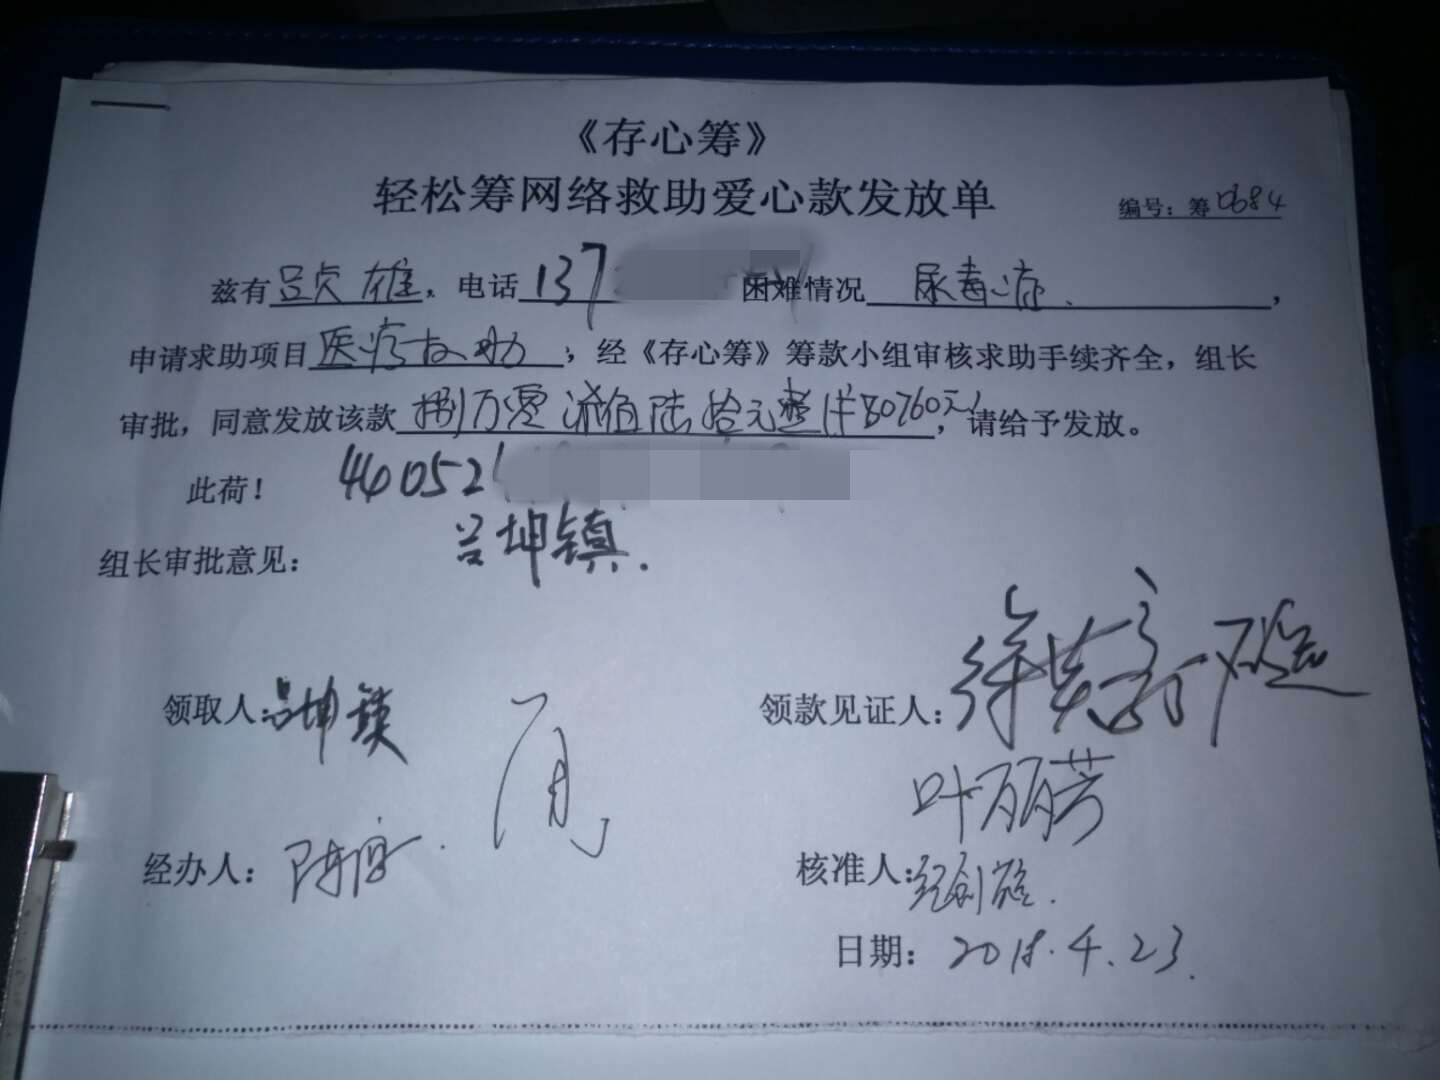 《存心筹》
轻松筹网络救助爱心款发放单
编号：筹0684
兹有吕贞雄，电话137 困难情况尿毒症，
申请求助项目医疗救助，经《存心筹》筹款小组审核求助手续齐全，组长
审批，同意发放该款捌万零柒佰陆拾元整（¥80760元），请给予发放。
此荷！ 44052
吕坤镇
组长审批意见：
领取人：吕坤镇 领款见证人：
叶丽芳
经办人： 核准人：
日期：2018.4.23